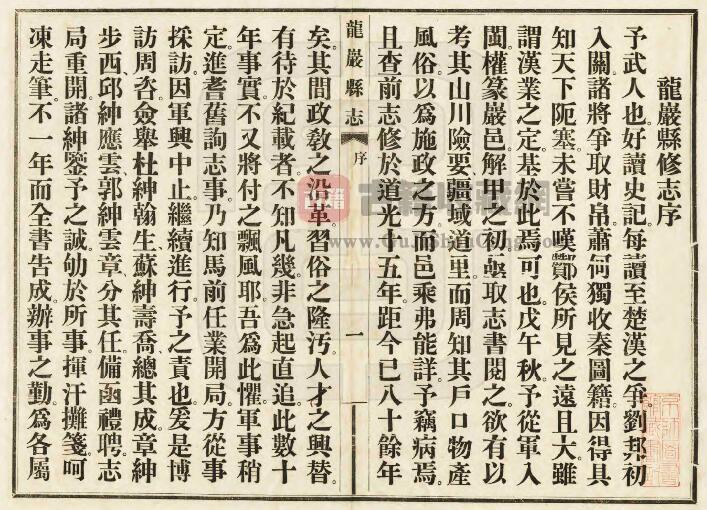 龍巖縣修志序
予武人也好讀史記每讀至楚漢之爭劉邦初
入關諸將爭取財帛蕭何獨收秦圖籍因得具
知天下阨塞未嘗不嘆酇侯所見之遠且大雖
謂漢業之定基於此焉可也戊午秋予從軍入
閩權篆巖邑解甲之初亟取志書閱之欲有以
考其山川險要疆域道里而周知其戶口物產
風俗以爲施政之方而邑乘弗能詳予竊病焉
且查前志修於道光十五年距今已八十餘年
龍巖縣志
序
一
矣其間政敎之沿革習俗之隆汚人才之興替
有待於紀載者不知凡幾非急起直追此數十
年事實不又將付之飄風耶吾爲此懼軍事稍
定進耆舊詢志事乃知馬前任業開局方從事
採訪因軍興中止繼續進行予之責也爰是博
訪周咨僉舉杜紳翰生蘇紳壽喬總其成章紳
步西邱紳應雲郭紳雲章分其任備函禮聘志
局重開諸紳鑒予之誠劬於所事揮汗攤箋呵
凍走筆不一年而全書告成辦事之勤爲各屬
古籍收藏網
www.GuJiShuCang.com